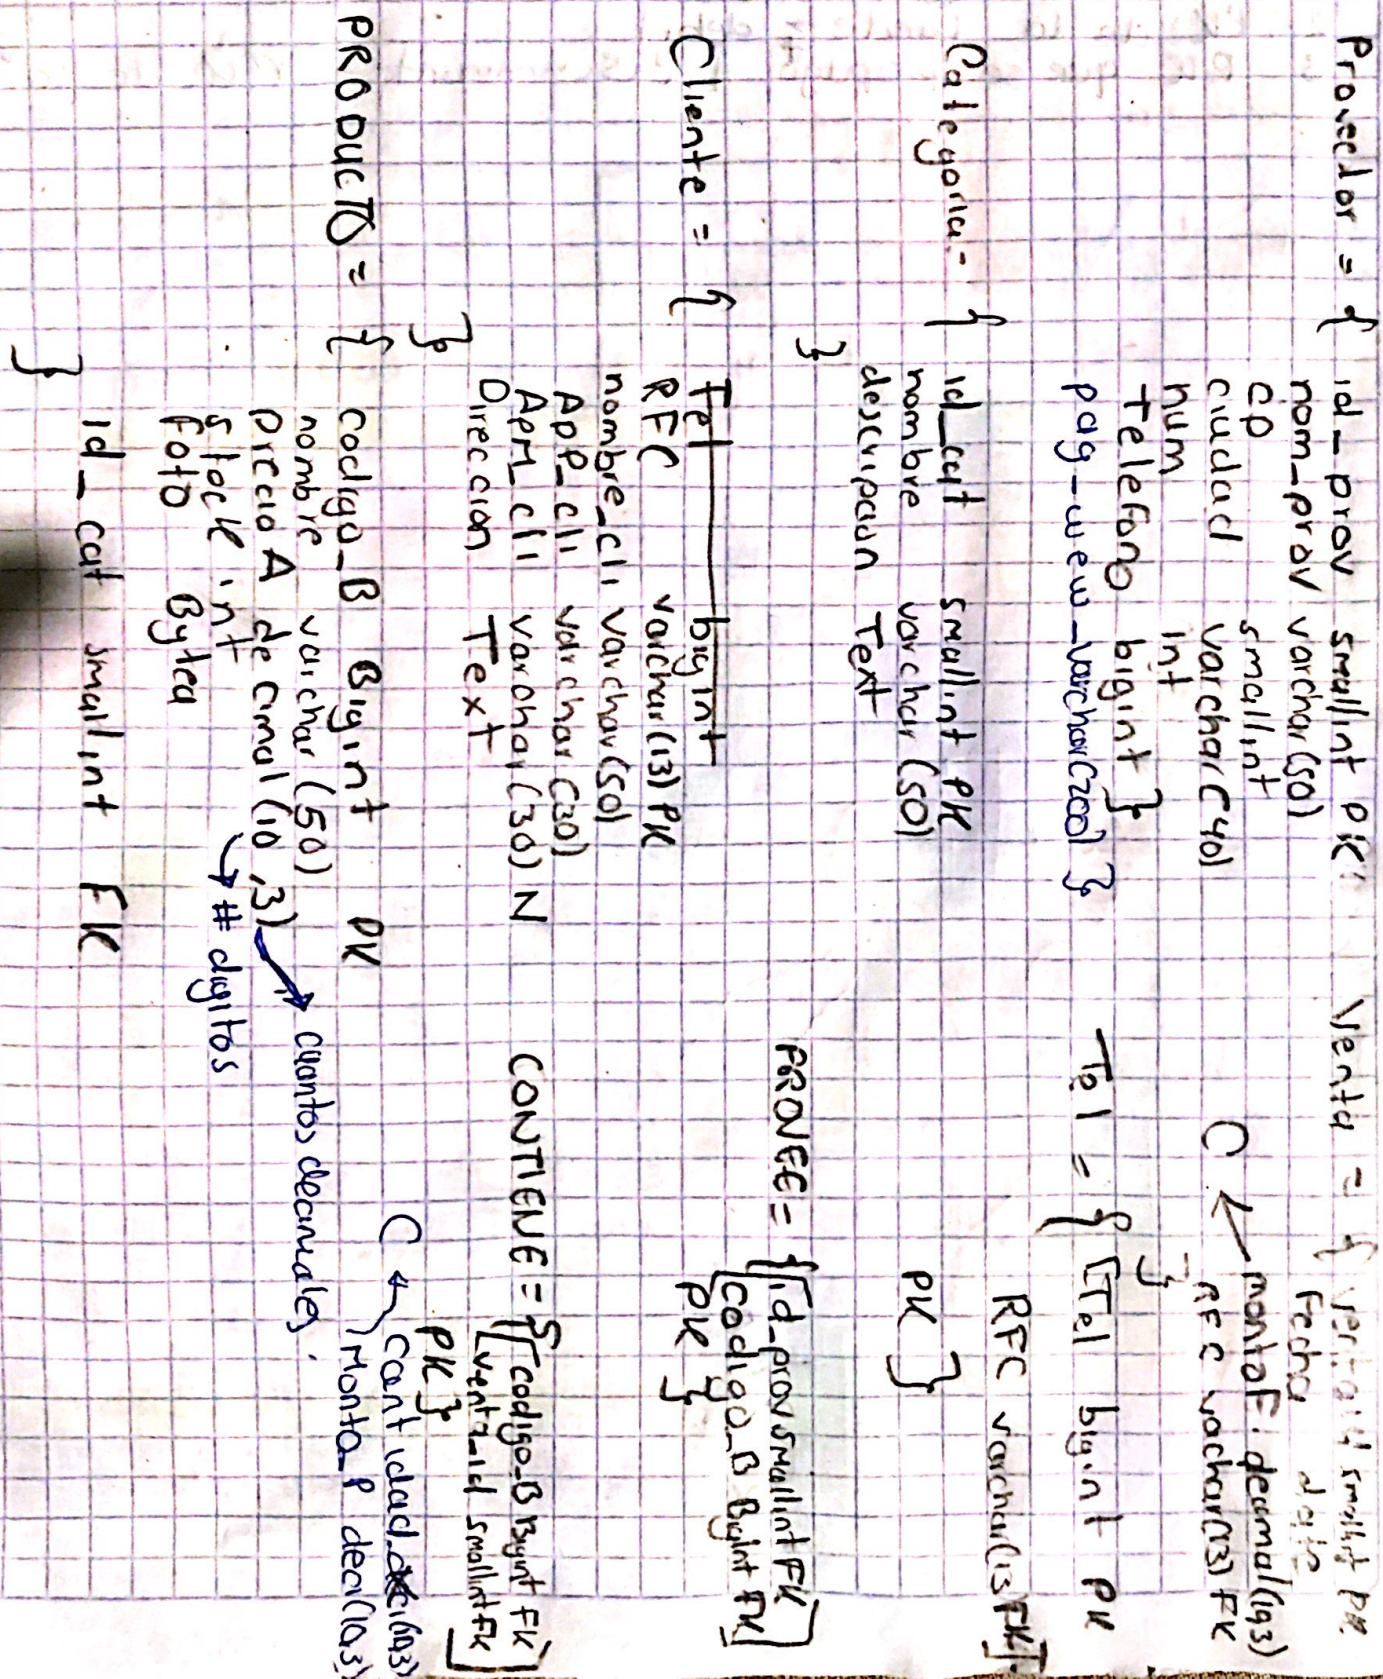 Proveedor = { id_prov smallint PK
nom_prov varchar(50)
cp smallint
ciudad varchar(40)
num int
Telefono bigint }
pag-wew_varchar(200) }
Categoria = { id_cat smallint PK
nombre varchar(50)
descripcion Text
}
Cliente = { Tel bigint
RFC varchar(13) PK
nombre_cli varchar(50)
App_cli varchar(30)
ApM_cli varchar(30) N
Direccion Text
}
PRODUCTO = { codigo_B Bigint PK
nombre varchar(50)
precio A decimal(10,3) → cuantos decimales.
→ # digitos
stock int
foto Bytea
id_cat smalint FK
}
Venta = { venta_id smallint PK
Fecha date
C ← montoF. decimal(10,3)
RFC vachar(13) FK
}
Tel = { [Tel bigint PK
RFC varchar(13 FK].
PK }
PROVEE = { [id_prov smallint FK
codigo_B Bigint FK]
PK }
CONTIENE = { [codigo_B Bigint FK
venta_id smallint FK]
PK }
C ← Cantidad (10,3)
Monto_P deci(10,3)